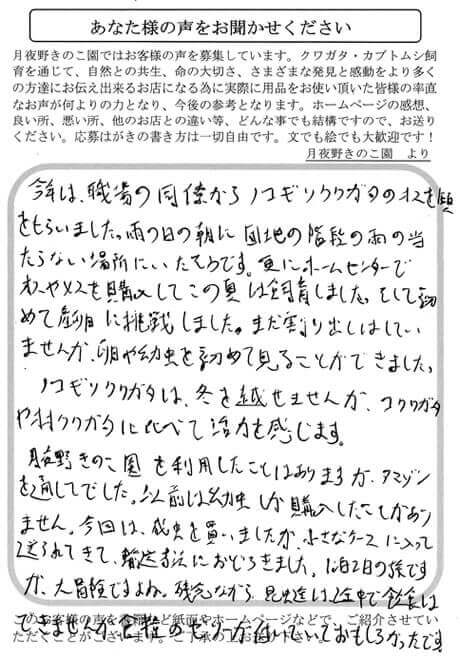 あなた様の声をお聞かせください
月夜野きのこ園ではお客様の声を募集しています。クワガタ・カブトムシ飼
育を通じて、自然との共生、命の大切さ、さまざまな発見と感動をより多く
の方達にお伝え出来るお店になる為に実際に用品をお使い頂いた皆様の率直
なお声が何よりの力となり、今後の参考となります。ホームページの感想、
良い所、悪い所、他のお店との違い等、どんな事でも結構ですので、お送り
ください。応募はがきの書き方は一切自由です。文でも絵でも大歓迎です！
月夜野きのこ園 より
今年は、職場の同僚からノコギリクワガタのオスを頭
をもらいました。雨の日の朝に団地の階段の雨の当
たらない場所にいたそうです。更にホームセンターで
オスやメスを購入してこの夏は飼育しました。そして初
めて産卵に挑戦しました。まだ割り出しはしてい
ませんが、卵や幼虫を初めて見ることができました。
ノコギリクワガタは、冬を越せませんが、コクワガタ
やオオクワガタに比べて活力を感じます。
月夜野きのこ園を利用したことはありますが、アマゾン
を通してでした。以前は幼虫しか購入したことがあり
ません。今回は、成虫を買いましたが、小さなケースに入って
送られてきて、輸送方法におどろきました。1泊2日の旅です
が、大冒険ですよね。残念ながら、昆虫達は途中で飲食は
できませんが、容器のゼリーが付いていておもしろかったです
このお客様の声を
ど紙面やホームページなどで、ご紹介させてい
ただくことがございます。ご了承の上お